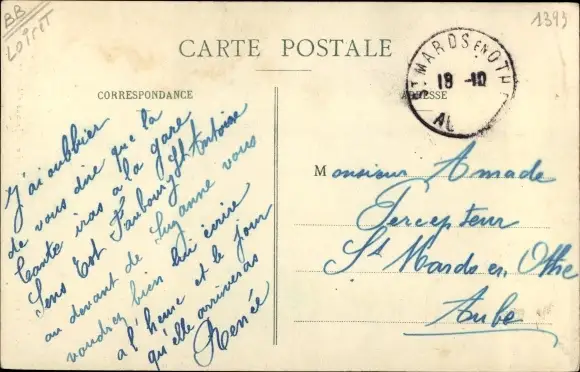 BB
LOIRET
1395
CARTE POSTALE
CORRESPONDANCE
ADRESSE
ST MARDS EN OTHE
18 -10
AU
J'ai oublier
de vous dire que la
tante iras à la gare
Sens Est Faubourg St Antoine
au devant de Suzanne vous
voudrez bien lui écrire
a l'heure et le jour
qu'elle arriveras
Renée
Monsieur Amade
Percepteur
St Mards en Othe
Aube